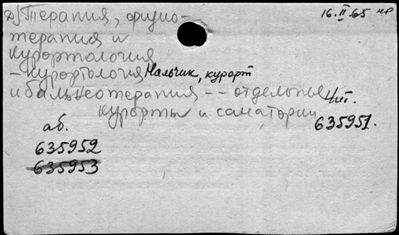 д) Терапия, физио- 16.II.65 нр
терапия и
курортология
– курортология Нальчик, курорт
и бальнеотерапия -- отдельные чит.
курорты и санатории 635951.
аб.
635952
635953